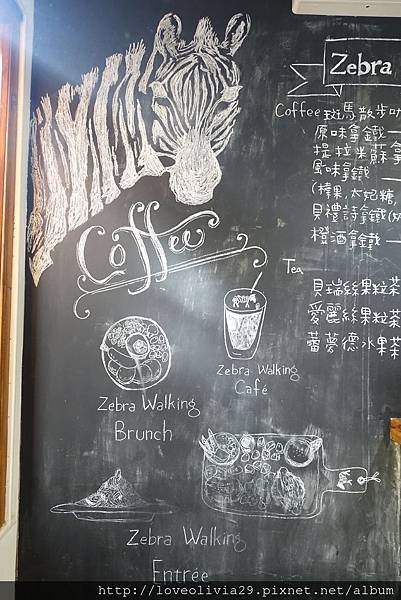 Zebra
Coffee 斑馬散步
原味拿鐵
提拉米蘇拿
風味拿鐵
(榛果,太妃糖,
貝禮詩拿鐵
橙酒拿鐵
Coffee
Tea
貝瑞絲果粒茶
愛麗絲果粒茶
蕾夢德水果茶
Zebra Walking
Café
Zebra Walking
Brunch
Zebra Walking
Entrée
http://loveolivia29.pixnet.net/album